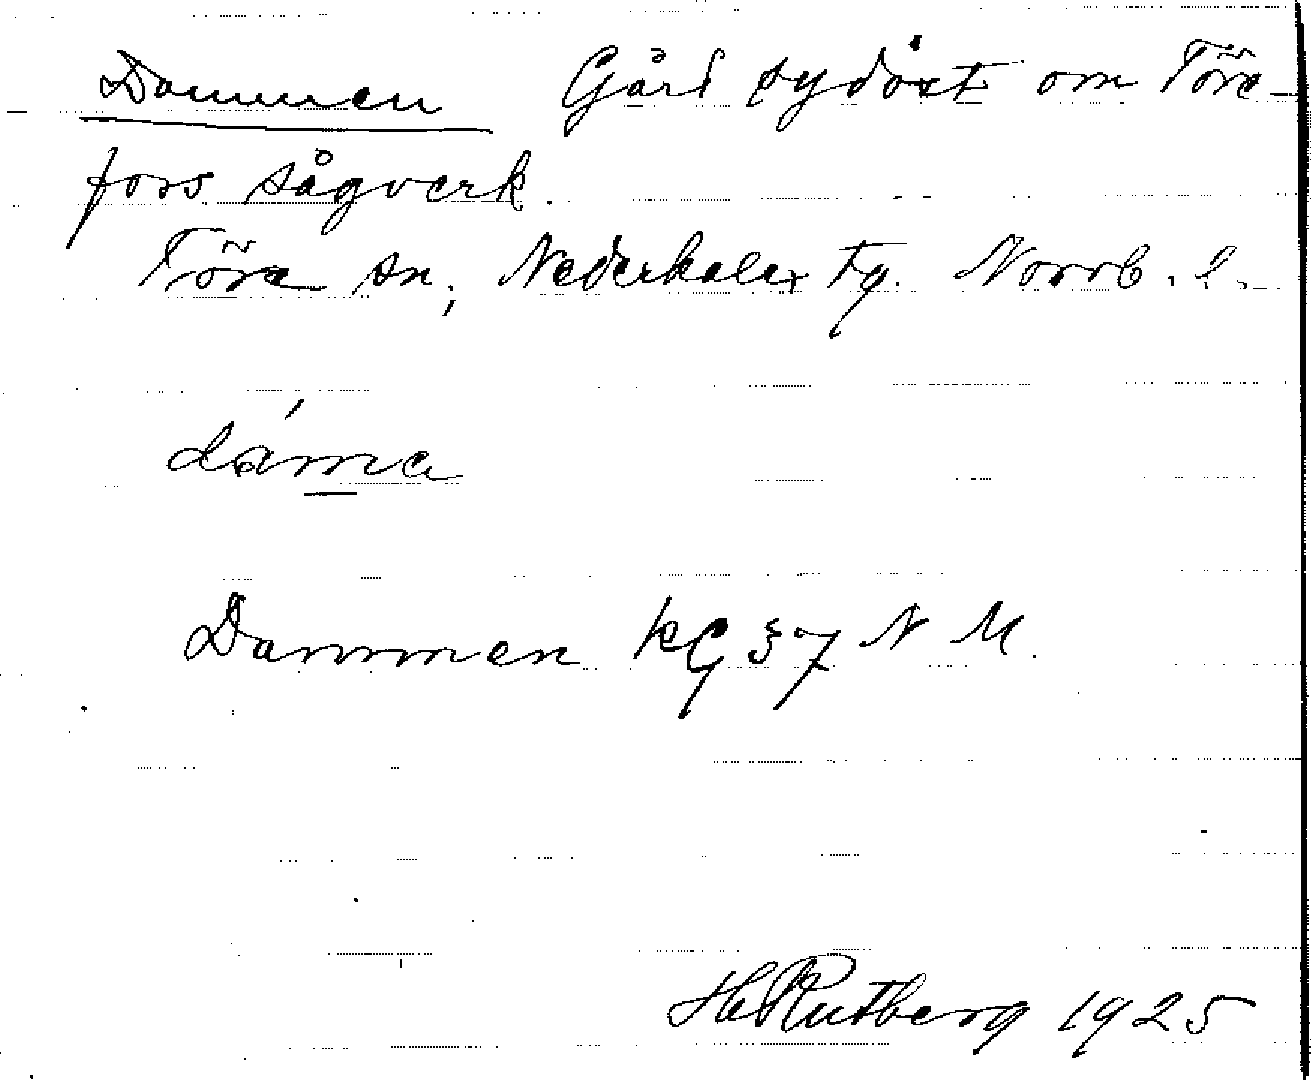 Dammen Gård sydöst om Töre-
fors sågverk.
Töre sn, Nederkalix tg. Norrb. l.
dáma
Dammen KG 37 N M.
H Rutberg 1925